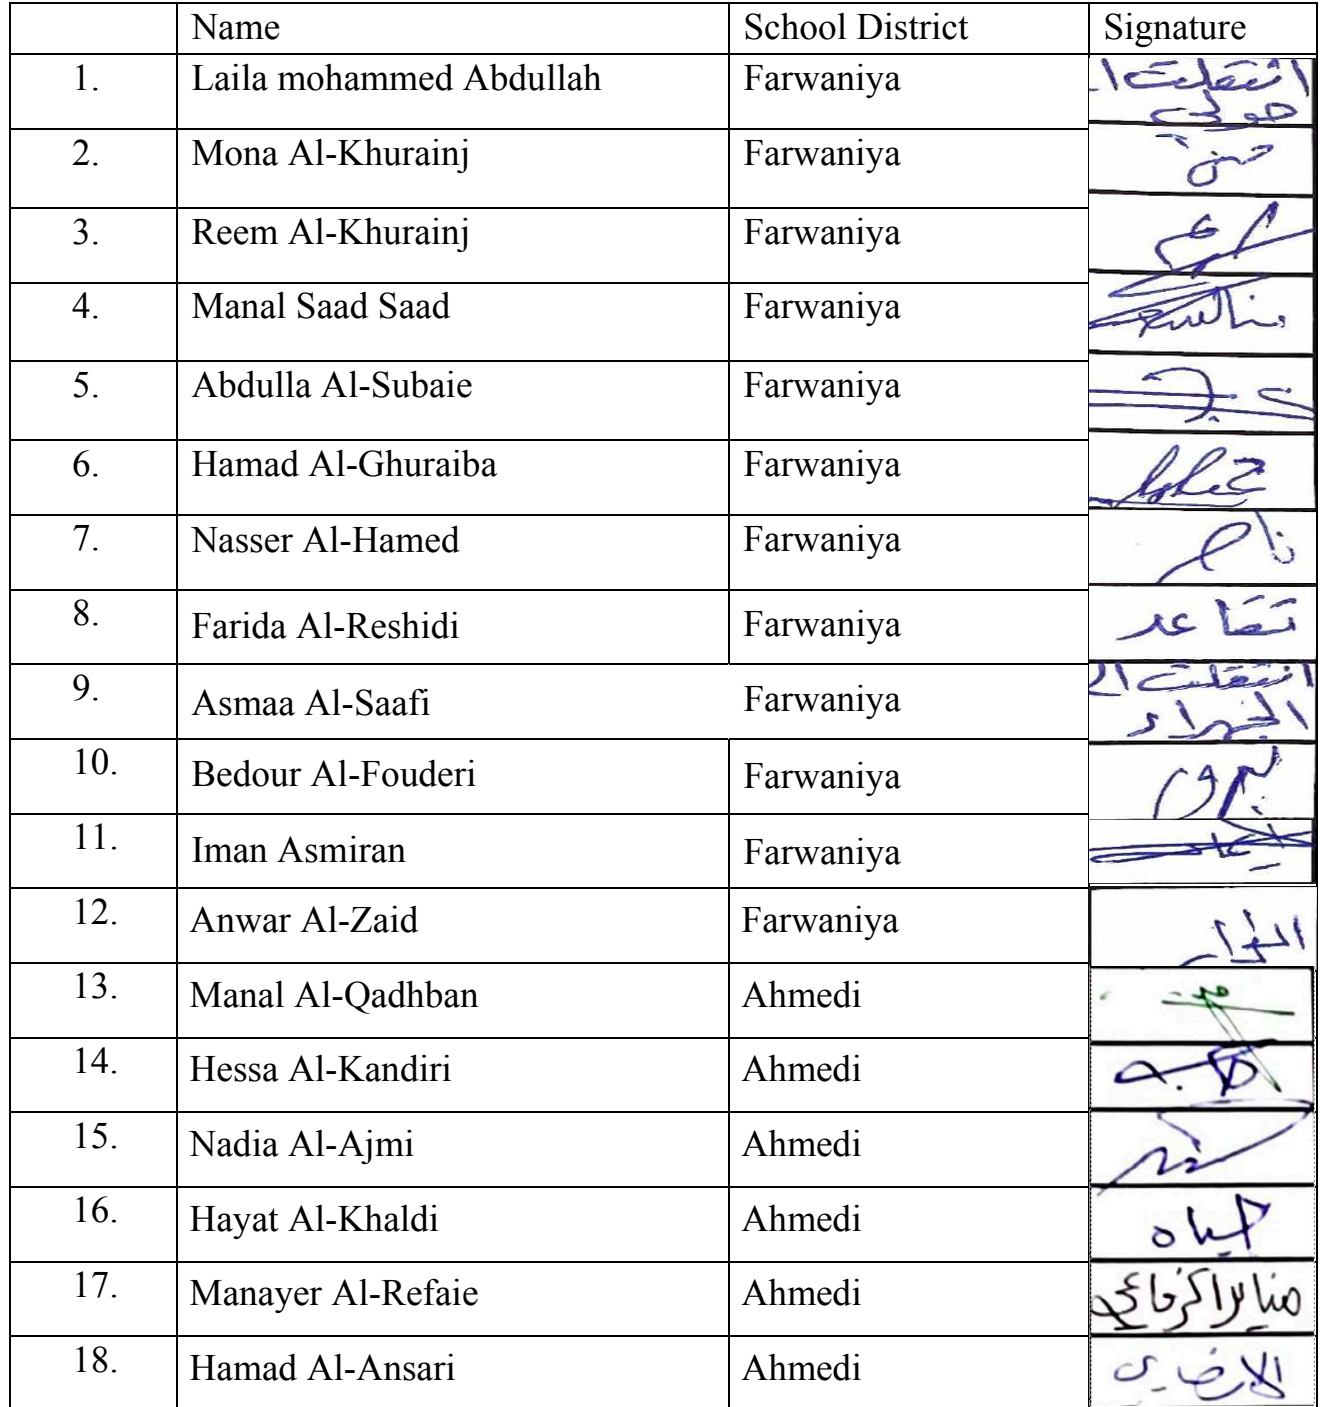 Name School District Signature
1. Laila mohammed Abdullah Farwaniya انتقلت الى
حولي
2. Mona Al-Khurainj Farwaniya
3. Reem Al-Khurainj Farwaniya
4. Manal Saad Saad Farwaniya
5. Abdulla Al-Subaie Farwaniya
6. Hamad Al-Ghuraiba Farwaniya
7. Nasser Al-Hamed Farwaniya ناصر
8. Farida Al-Reshidi Farwaniya تقاعد
9. Asmaa Al-Saafi Farwaniya انتقلت الى
الجهراء
10. Bedour Al-Fouderi Farwaniya
11. Iman Asmiran Farwaniya
12. Anwar Al-Zaid Farwaniya
13. Manal Al-Qadhban Ahmedi
14. Hessa Al-Kandiri Ahmedi
15. Nadia Al-Ajmi Ahmedi
16. Hayat Al-Khaldi Ahmedi حياه
17. Manayer Al-Refaie Ahmedi مناير الرفاعي
18. Hamad Al-Ansari Ahmedi